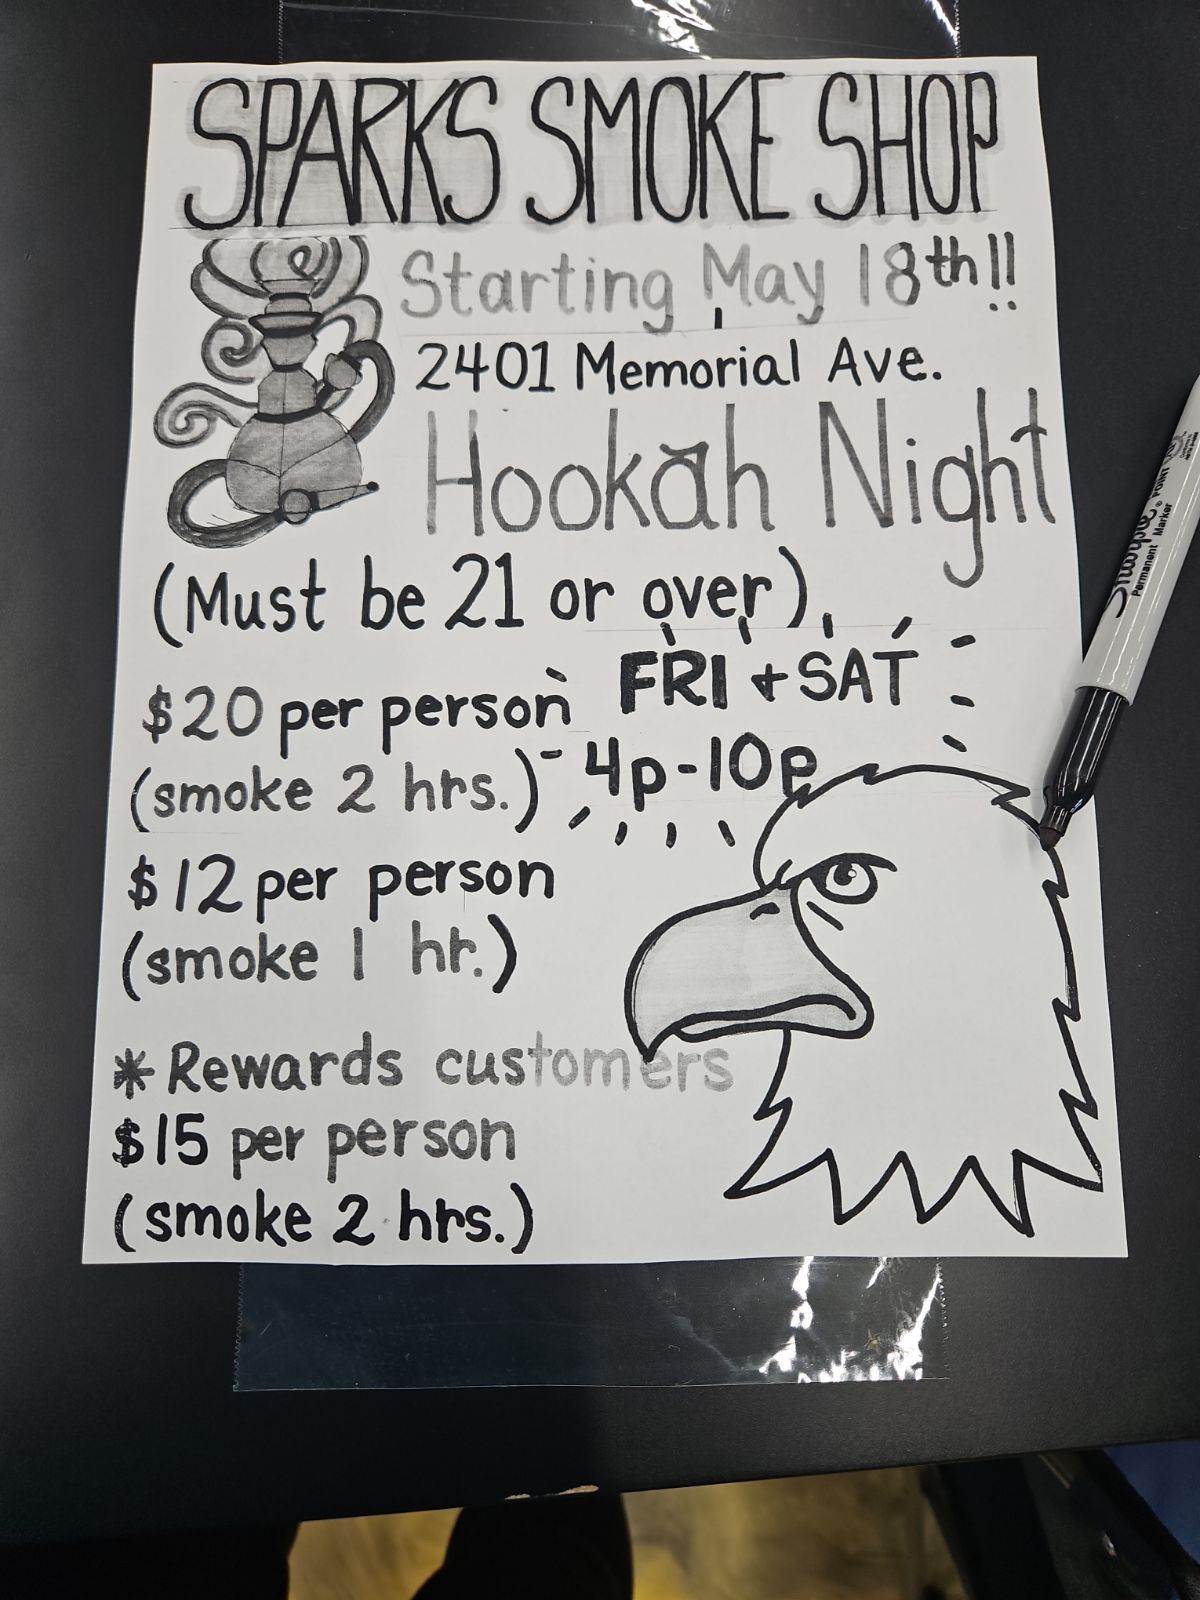 SPARKS SMOKE SHOP
Starting May 18th!!
2401 Memorial Ave.
Hookah Night
(Must be 21 or over)
FRI + SAT
4p-10p
$20 per person
(smoke 2 hrs.)
$12 per person
(smoke 1 hr.)
* Rewards customers
$15 per person
(smoke 2 hrs.)
Sharpie
POINT
Permanent Marker